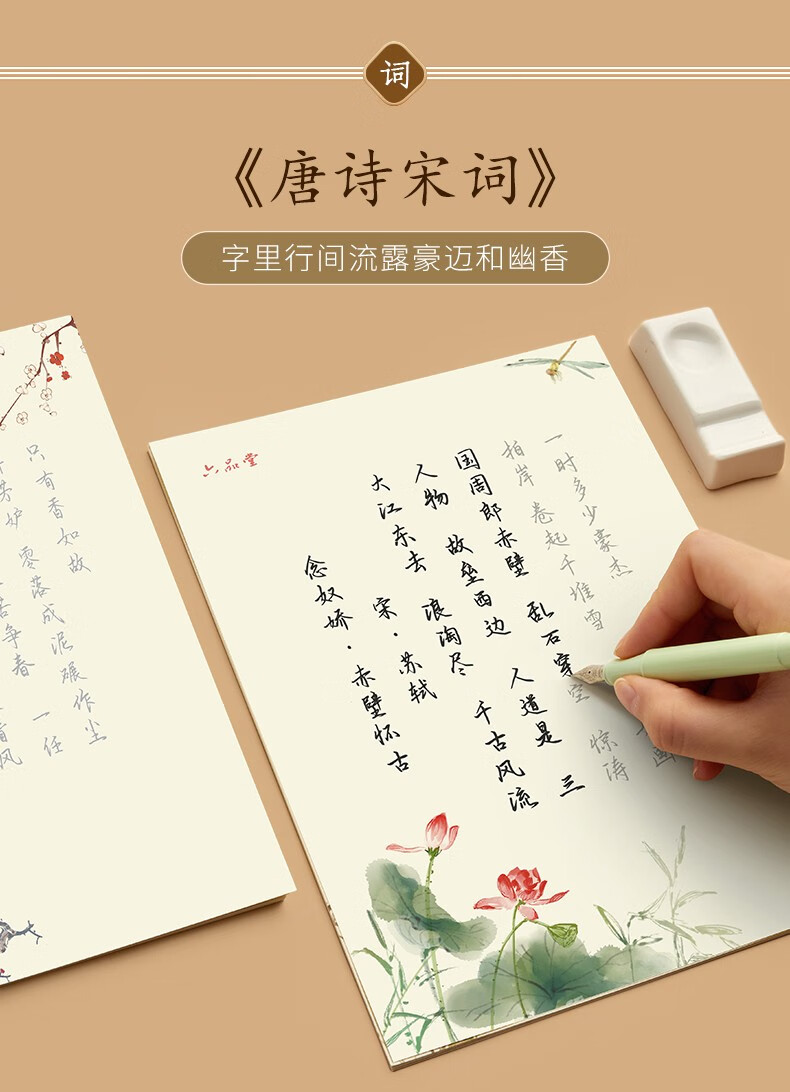 词
《唐诗宋词》
字里行间流露豪迈和幽香
苦争春 一任
芳妒 零落成泥碾作尘
只有香如故
六品堂
念奴娇·赤壁怀古
宋·苏轼
大江东去 浪淘尽 千古风流
人物 故垒西边 人道是 三
国周郎赤壁 乱石穿空 惊涛
拍岸 卷起千堆雪 画
一时多少豪杰